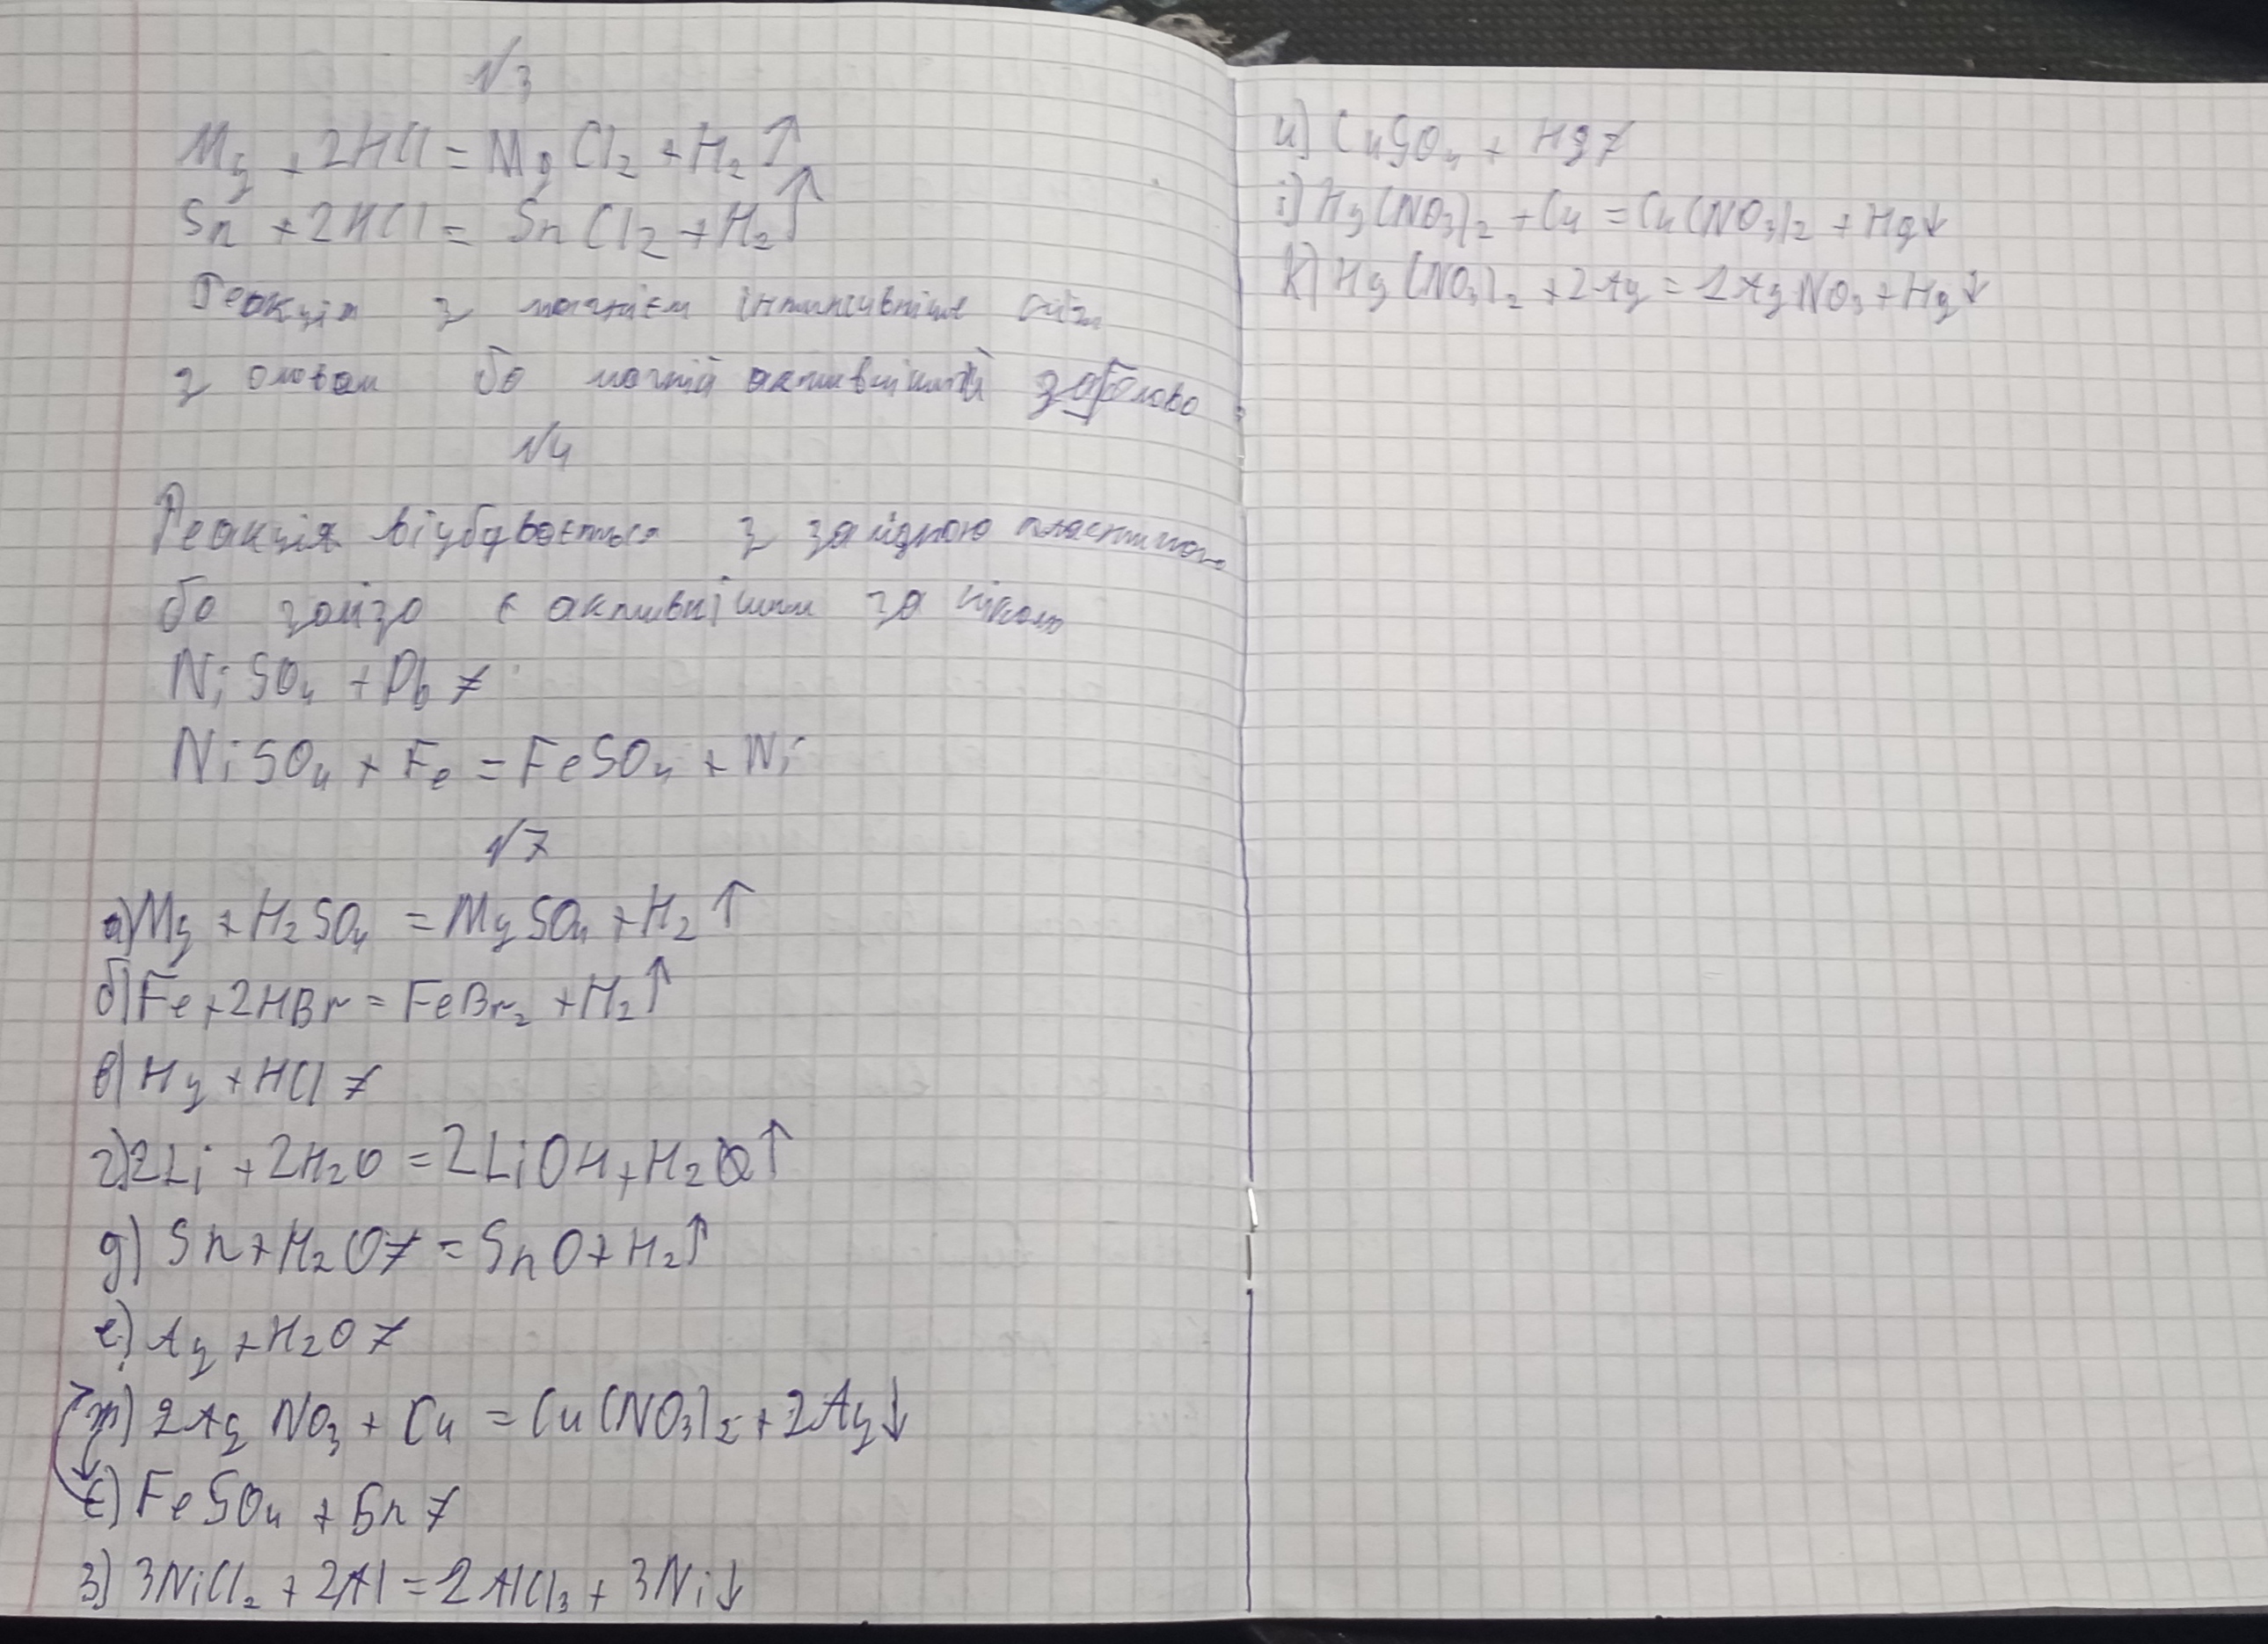 №3
Mg + 2HCl = MgCl₂ + H₂↑
Sn + 2HCl = SnCl₂ + H₂↑
Реакція з магнієм інтинсивніше ніж
з оловом бо магній активніший за олово
№4
Реакція відбувається з залізною пластиною
бо залізо є активнішим за нікол
NiSO₄ + Pb ≠
NiSO₄ + Fe = FeSO₄ + Ni
№7
а) Mg + H₂SO₄ = MgSO₄ + H₂↑
б) Fe + 2HBr = FeBr₂ + H₂↑
в) Hg + HCl ≠
г) 2Li + 2H₂O = 2LiOH + H₂↑
д) Sn + H₂O ≠ = SnO + H₂↑
е) Ag + H₂O ≠
ж) 2AgNO₃ + Cu = Cu(NO₃)₂ + 2Ag↓
є) FeSO₄ + Sn ≠
з) 3NiCl₂ + 2Al = 2AlCl₃ + 3Ni↓
и) CuSO₄ + Hg ≠
і) Hg(NO₃)₂ + Cu = Cu(NO₃)₂ + Hg↓
к) Hg(NO₃)₂ + 2Ag = 2AgNO₃ + Hg↓